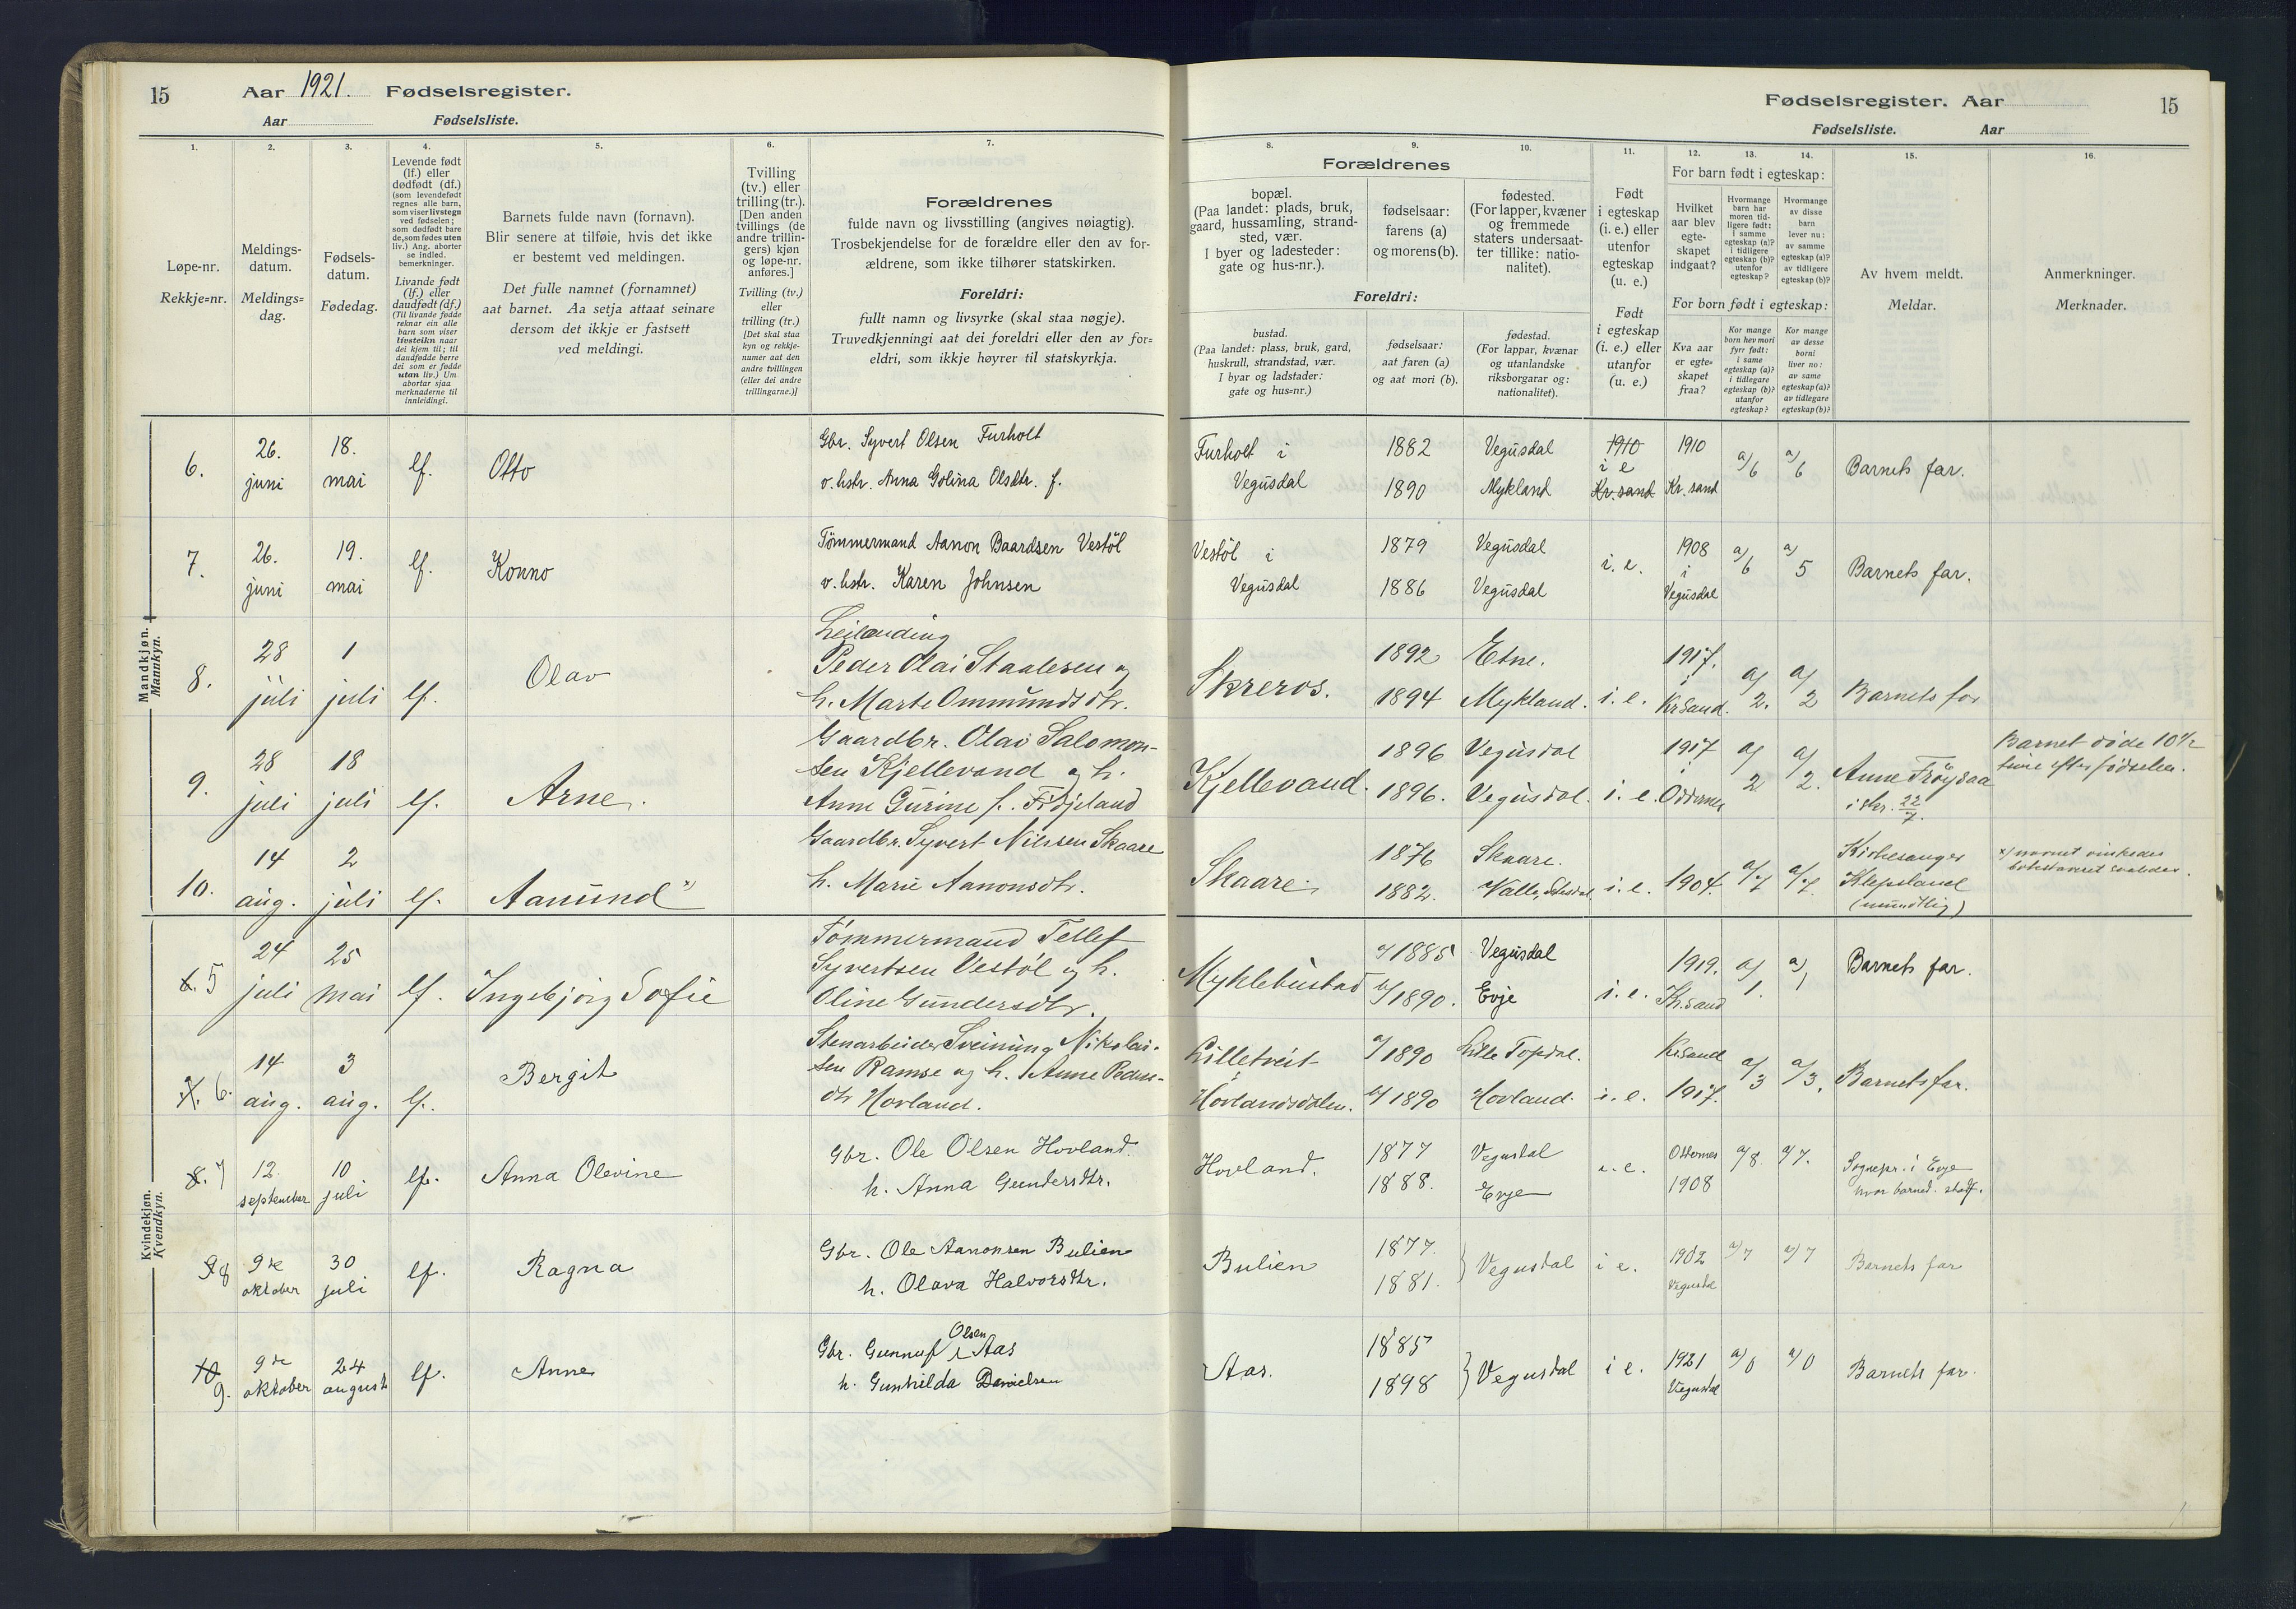 15 Aar 1921. Fødselsregister.
Aar Fødselsliste.
Fødselsregister. Aar 15
Fødselsliste. Aar
1. 2. 3. 4. 5. 6. 7. 8. 9. 10. 11. 12. 13. 14. 15. 16.
Løpe-nr.
Rekkje=nr.
Meldings-
datum.
Meldings=
dag.
Fødsels-
datum.
Fødedag.
Levende født
(lf.) eller
dødfødt (df.)
(som levendefødt
regnes alle barn,
som viser livstegn
ved fødselen;
som dødfødt bare
de, som fødes uten
liv.) Ang. aborter
se indled.
bemerkninger.
Livande født
(lf.) eller
daudfødt (df.)
(Til livande fødde
reknar ein alle
barn som viser
livsteikn naar
dei kjem til; til
daudfødde berre
dei som er fødde
utan liv.) Um
abortar sjaa
merknaderne til
innleidingi.
Barnets fulde navn (fornavn).
Blir senere at tilføie, hvis det ikke
er bestemt ved meldingen.
Det fulle namnet (fornamnet)
aat barnet. Aa setja attaat seinare
dersom det ikkje er fastsett
ved meldingi.
Tvilling
(tv.) eller
trilling (tr.).
[Den anden
tvillings (de
andre trillin-
gers) kjøn
og løpe-nr.
anføres.]
Tvilling (tv.)
eller
trilling (tr.)
[Det skal staa
kyn og rekkje-
numer aat den
andre tvillingen
(eller dei andre
trillingarne.)]
Forældrenes
fulde navn og livsstilling (angives nøiagtig).
Trosbekjendelse for de forældre eller den av for-
ældrene, som ikke tilhører statskirken.
Foreldri:
fullt namn og livsyrke (skal staa nøgje).
Truvedkjenningi aat dei foreldri eller den av for=
eldri, som ikkje høyrer til statskyrkja.
Forældrenes
bopæl.
(Paa landet: plads, bruk,
gaard, hussamling, strand-
sted, vær.
I byer og ladesteder:
gate og hus-nr.).
fødselsaar:
farens (a)
og morens (b).
fødested.
(For lapper, kvæner
og fremmede
staters undersaat-
ter tillike: natio-
nalitet).
Foreldri:
bustad.
(Paa landet: plass, bruk, gard,
huskrull, strandstad, vær.
I byar og ladstader:
gate og hus=nr.)
fødselsaar:
aat faren (a)
og aat mori (b).
fødestad.
(For lappar, kvænar
og utanlandske
riksborgarar og:
nationalitet).
Født
i egteskap
(i. e.) eller
utenfor
egteskap
(u. e.)
Født
i egteskap
(i. e.) eller
utanfor
(u. e.)
For barn født i egteskap:
Hvilket
aar blev
egte-
skapet
indgaat?
Hvormange
barn har
moren tid-
ligere født:
i samme
egteskap (a)?
i tidligere
egteskap (b)?
utenfor
egteskap?
Hvormange
av disse
barn
lever nu:
av samme
egteskap (a)?
av tidligere
egteskap (b)?
For born født i egteskap:
Kva aar
er egte-
skapet
fraa?
Kor mange
born hev mori
fyrr født:
i same
egteskap (a)?
i tidlegare
egteskap (b)?
utanfor
egteskap?
Kor mange
av desse
borni
liver no:
av same
egteskap (a)?
av tidlegare
egteskap (b)?
Av hvem meldt.
Meldar.
Anmerkninger.
Merknader.
Mandkjøn.
Mannkyn.
6. 26. juni 18. mai lf. Otto
Gbr. Syvert Olsen Furholt
v. hstr. Anna Golina Olsdtr. f.
Furholt i Vegusdal 1882 1890 Vegusdal Mykland 1910 i e Kr. sand 1910 Kr. sand a/6 a/6 Barnets far.
7. 26. juni 19. mai lf. Konno
Tømmermand Aanon Baardsen Vestöl
v. hstr. Karen Johnsen
Vestöl i Vegusdal 1879 1886 Vegusdal Vegusdal i. e. 1908 i Vegusdal a/6 a/5 Barnets far.
8. 28 juli 1 juli lf. Olav
Leilænding
Peder Olai Staalesen og
h. Marte Ommundsdtr.
Skreros. 1892 1894 Etne. Mykland. i. e. 1917. i Kr Sand. a/2. a/2 Barnets far
9. 28 juli 18 juli lf. Arne.
Gaardbr. Olai Salomon-
sen Kjellevand og h.
Anne Gurine f. Frøjeland
Kjellevand. 1896 1896. Vegusdal Vegusdal. i. e. 1917 i Oddernes a/2 a/2. Anne Frøysaa
i skr. 22/7.
Barnet døde 10 1/2
time efter fødselen.
10. 14 aug. 2 juli lf. Aamund x)
Gaardbr. Syvert Nilssen Skaare
h. Marie Aanonsdtr.
Skaare. 1876 1882. Skaare. Valle, i. e. 1904. a/7 a/7. Kirkesanger
Klepsland
(mundtlig)
x) navnet ønskedes
Kvindekjøn.
Kvendkyn.
6. 5 24 juli 25 mai lf. Ingebjørg Sofie
Tömmermand Tellef
Syvertsen Vestöl og h.
Oline Gundersdtr.
Myklebustad a/1885 b/1890. Vegusdal Evje i. e. 1919. Kr. sand a/1. a/1 Barnets far.
7. 6. 14 aug. 3 aug. lf. Bergit
Stenarbeider Sveinung Nikolai-
sen Ramse og h. Anne Peders-
dtr Hovland.
Lilletveit
i
Hovlandsdalen. a/1890 b/1890 Lille Topdal. Hovland. i. e. Kr Sand 1917. a/3 a/3. Barnets far.
8. 7 12. september 10 juli lf. Anna Olevine
Gbr. Ole Olsen Hovland.
h. Anna Gundersdtr.
Hovland. 1877 1888. Vegusdal Evje i. e. Oddernes 1908 a/8. a/7. Sognepr. i Evje
hvor barnet
9 8 9de oktober 30 juli lf. Ragna
Gbr. Ole Aanonsen Bulien
h. Olava Halvorsdtr.
Bulien 1877. 1881. } Vegusdal i e. 1902 Vegusdal a/7 a/7 Barnets far
10 9. 9de oktober 24 august lf. Anne
Gbr. Gunnuf Olsen Aas
h. Gunhilda Danielsen
Aas. 1885 1898 } Vegusdal i e. 1921 Vegusdal a/0 a/0 Barnets far.